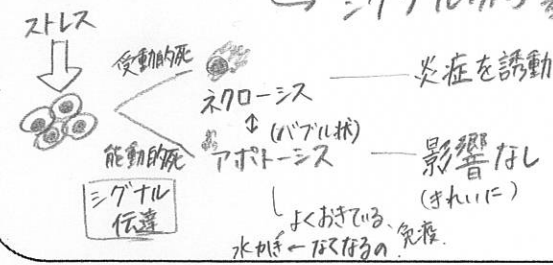 ストレス
受動的死
ネクローシス
炎症を誘動
↕ (バブル状)
能動的死
アポトーシス
影響なし
(きれいに)
シグナル
伝達
よくおきている、
水かき←なくなるの 免疫.